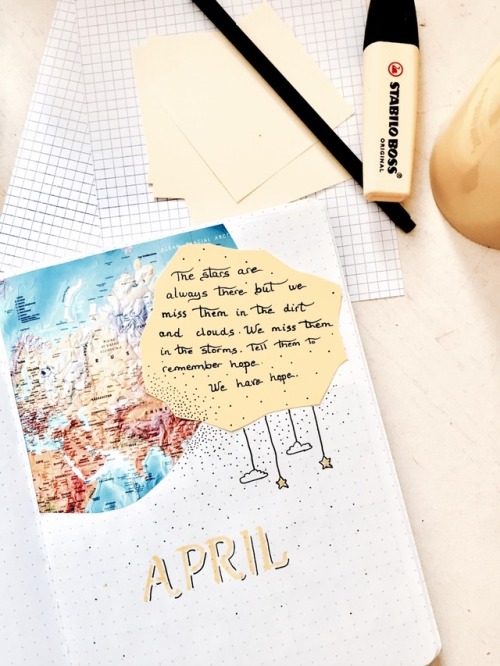 STABILO BOSS®
ORIGINAL
The stars are
always there but we
miss them in the dirt
and clouds. We miss them
in the storms. Tell them to
remember hope.
We have hope.
APRIL